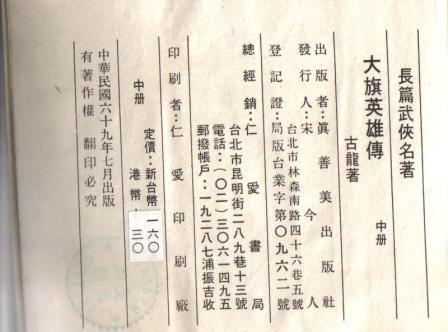 長篇武俠名著
大旗英雄傳 中册
古龍著
出版者：眞善美出版社
發行人：宋今人
台北市林森南路四十六巷五號
登記證：局版台業字第〇九六二號
總經銷：仁愛書局
台北市昆明街二八九巷十三號
電話：（〇二）三〇六一四九五
郵撥帳戶：一九二八七浦振吉收
印刷者：仁愛印刷廠
中册 定價：新台幣 一六〇
港幣： 三〇
中華民國六十九年七月出版
有著作權 翻印必究